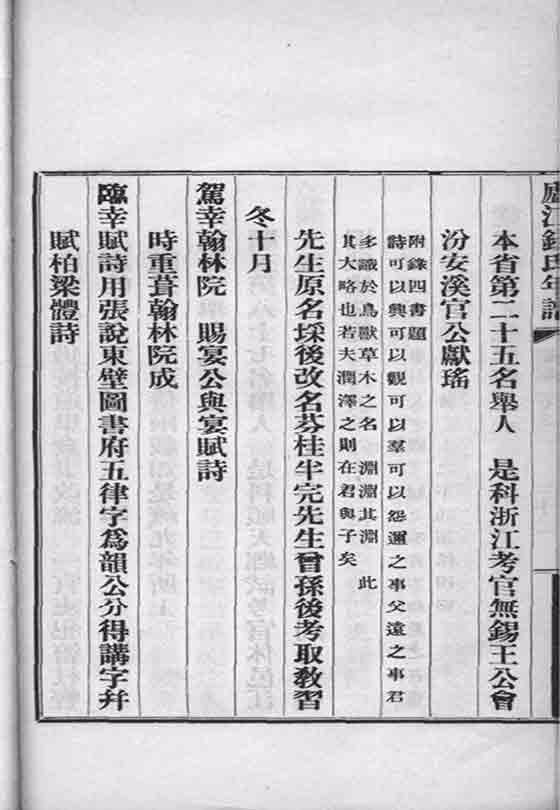 廬江錢氏年譜
本省第二十五名舉人　是科浙江考官無錫王公會
汾安溪官公獻瑤
附錄四書題
詩可以興可以觀可以羣可以怨邇之事父遠之事君
多識於鳥獸草木之名　淵淵其淵　此
其大略也若夫潤澤之則在君與子矣
先生原名埰後改名芬桂半完先生曾孫後考取敎習
冬十月
駕幸翰林院　賜宴公與宴賦詩
時重葺翰林院成
臨幸賦詩用張說東壁圖書府五律字爲韻公分得講字幷
賦柏梁體詩